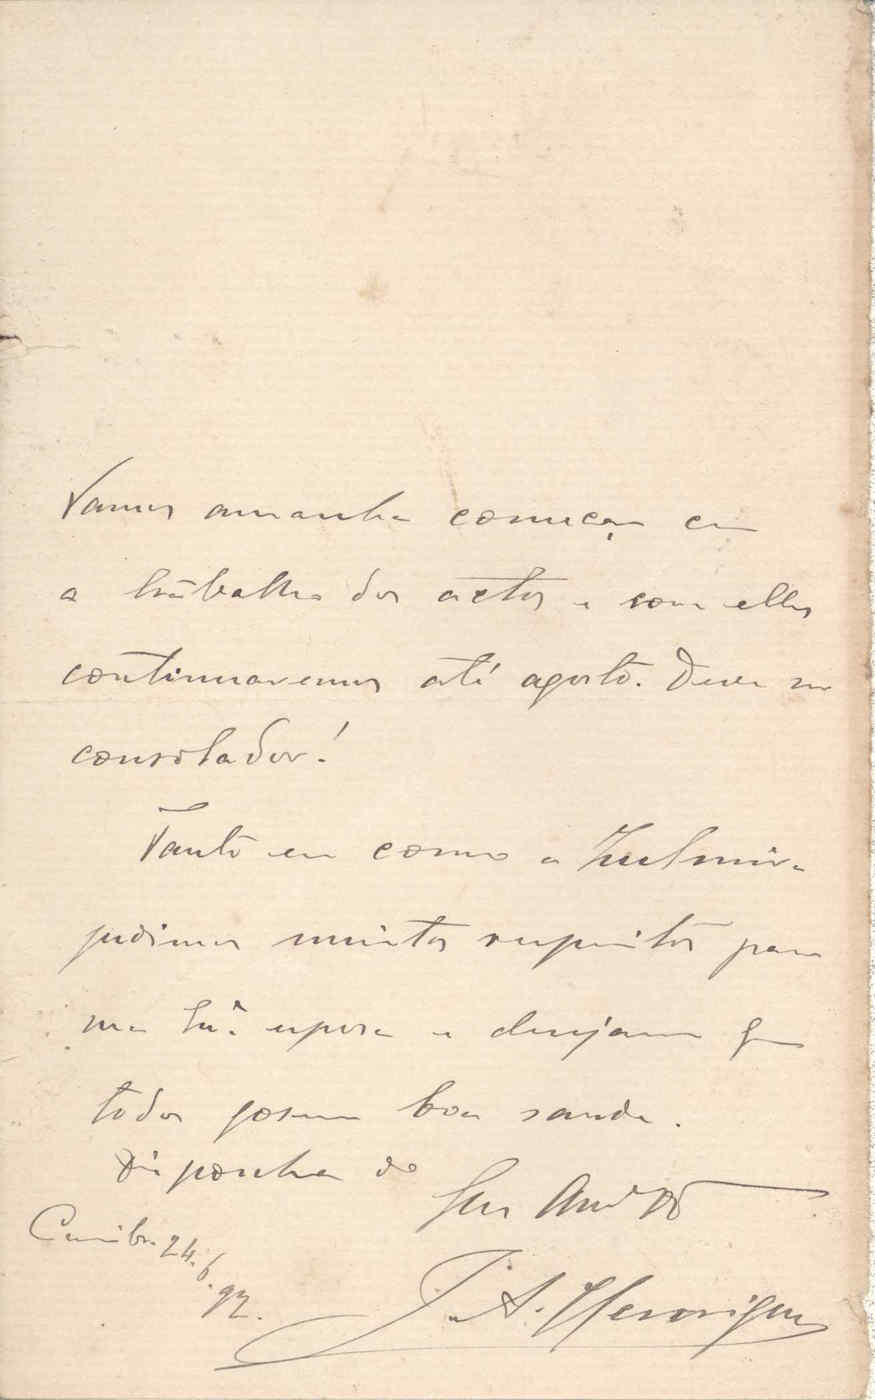 Vamos amanha começar com
o trabalho dos actos e com elles
continuaremos até agosto. Deve ser
consolador!
Tanto eu como a Zulmira
pedimos muitos respeitos para
sua Exª esposa e desejamos q
todos gosem boa saude.
Disponha do
Seu Amº
Coimbra 24.6.92.
J. A. Henriques